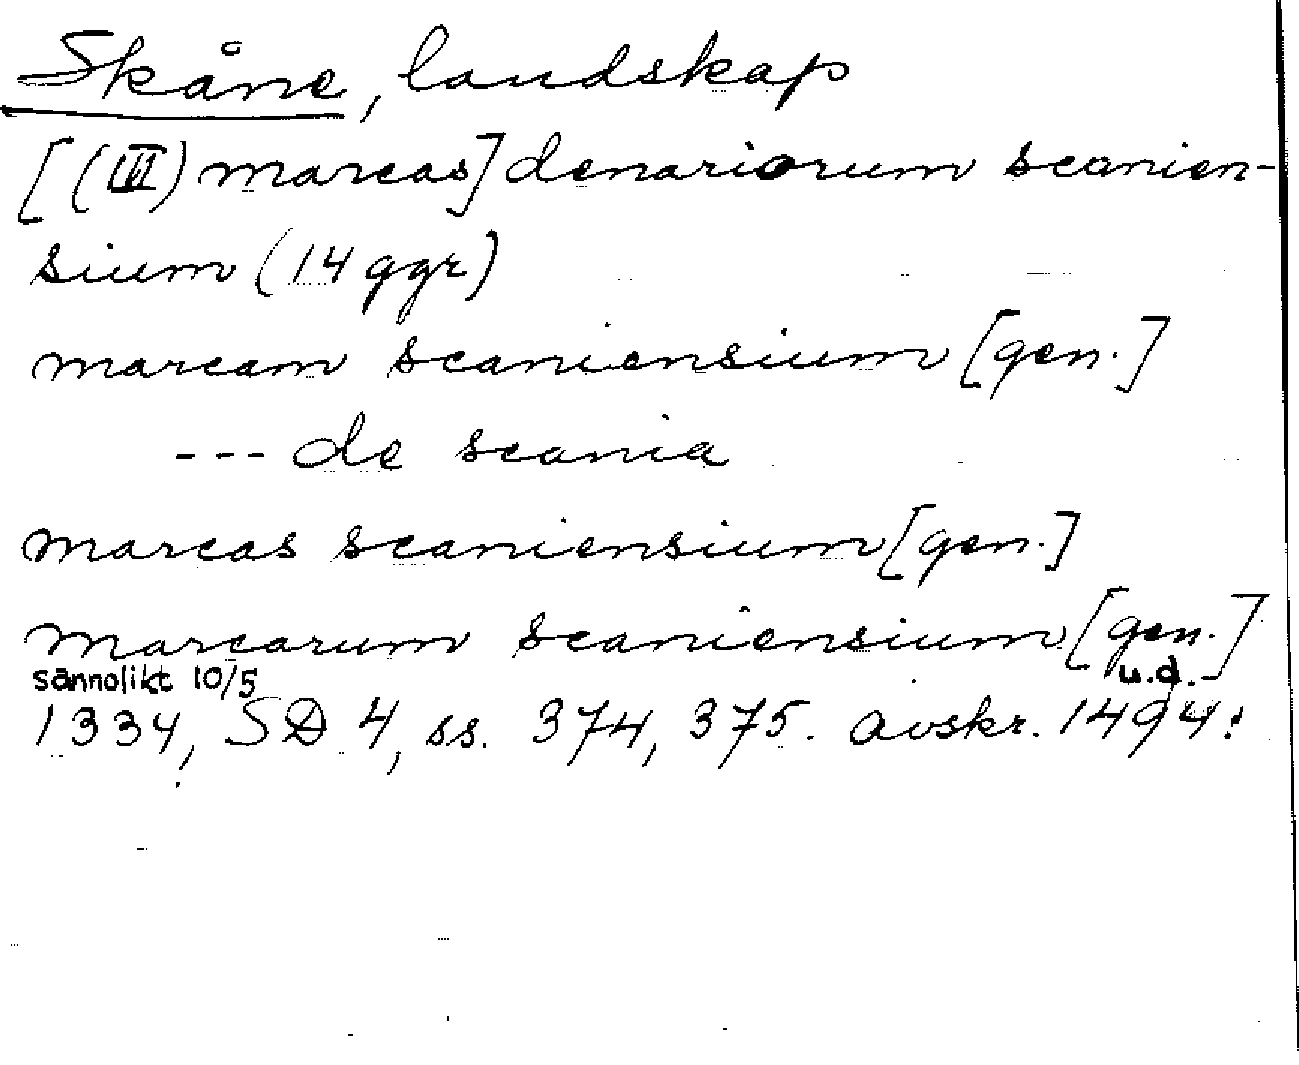 Skåne, landskap
[(III) marcas] denariorum scanien-
sium (14 ggr)
marcam scaniensium [gen.]
--- de scania
marcas scaniensium [gen.]
marcarum scaniensium [gen.]
sannolikt 10/5 u.d.
1334, SD 4, ss. 374, 375. avskr. 1494!